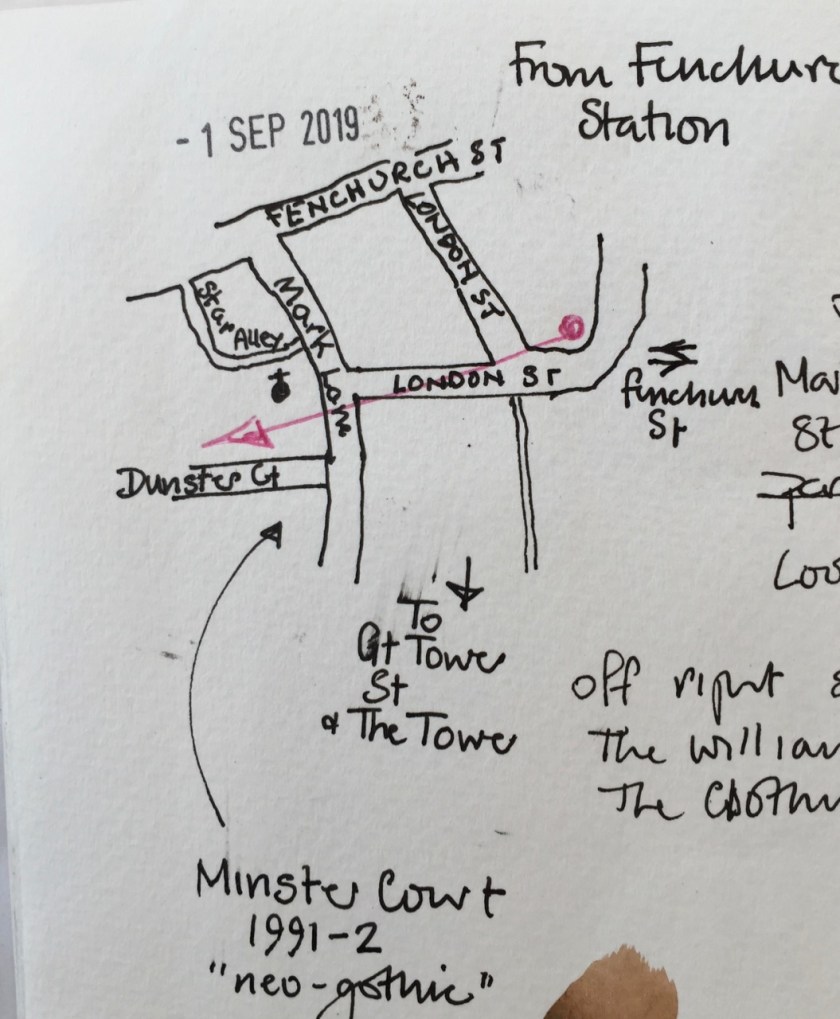 From Fenchurc
Station
- 1 SEP 2019
FENCHURCH ST
LONDON ST
Star Alley
Mark Lane
LONDON ST
Fenchurch
St
Dunster Ct
Mar
St
Loo
To
Gt Tower
St
& The Tower
off right
The Willian
The Clothw
Minster Court
1991-2
"neo-gothic"